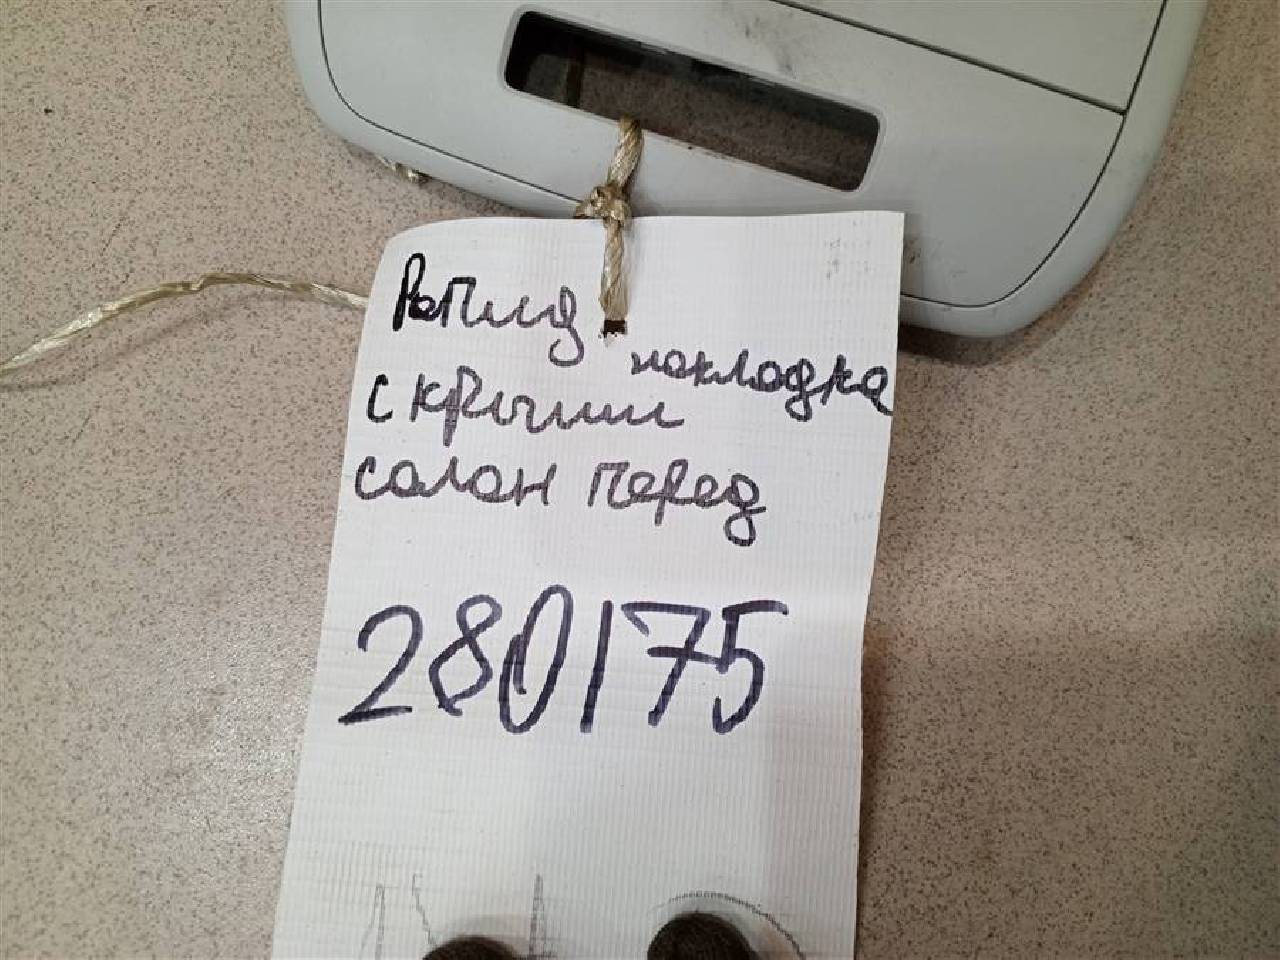 Рапид
накладка
с крыши
салон перед
280175